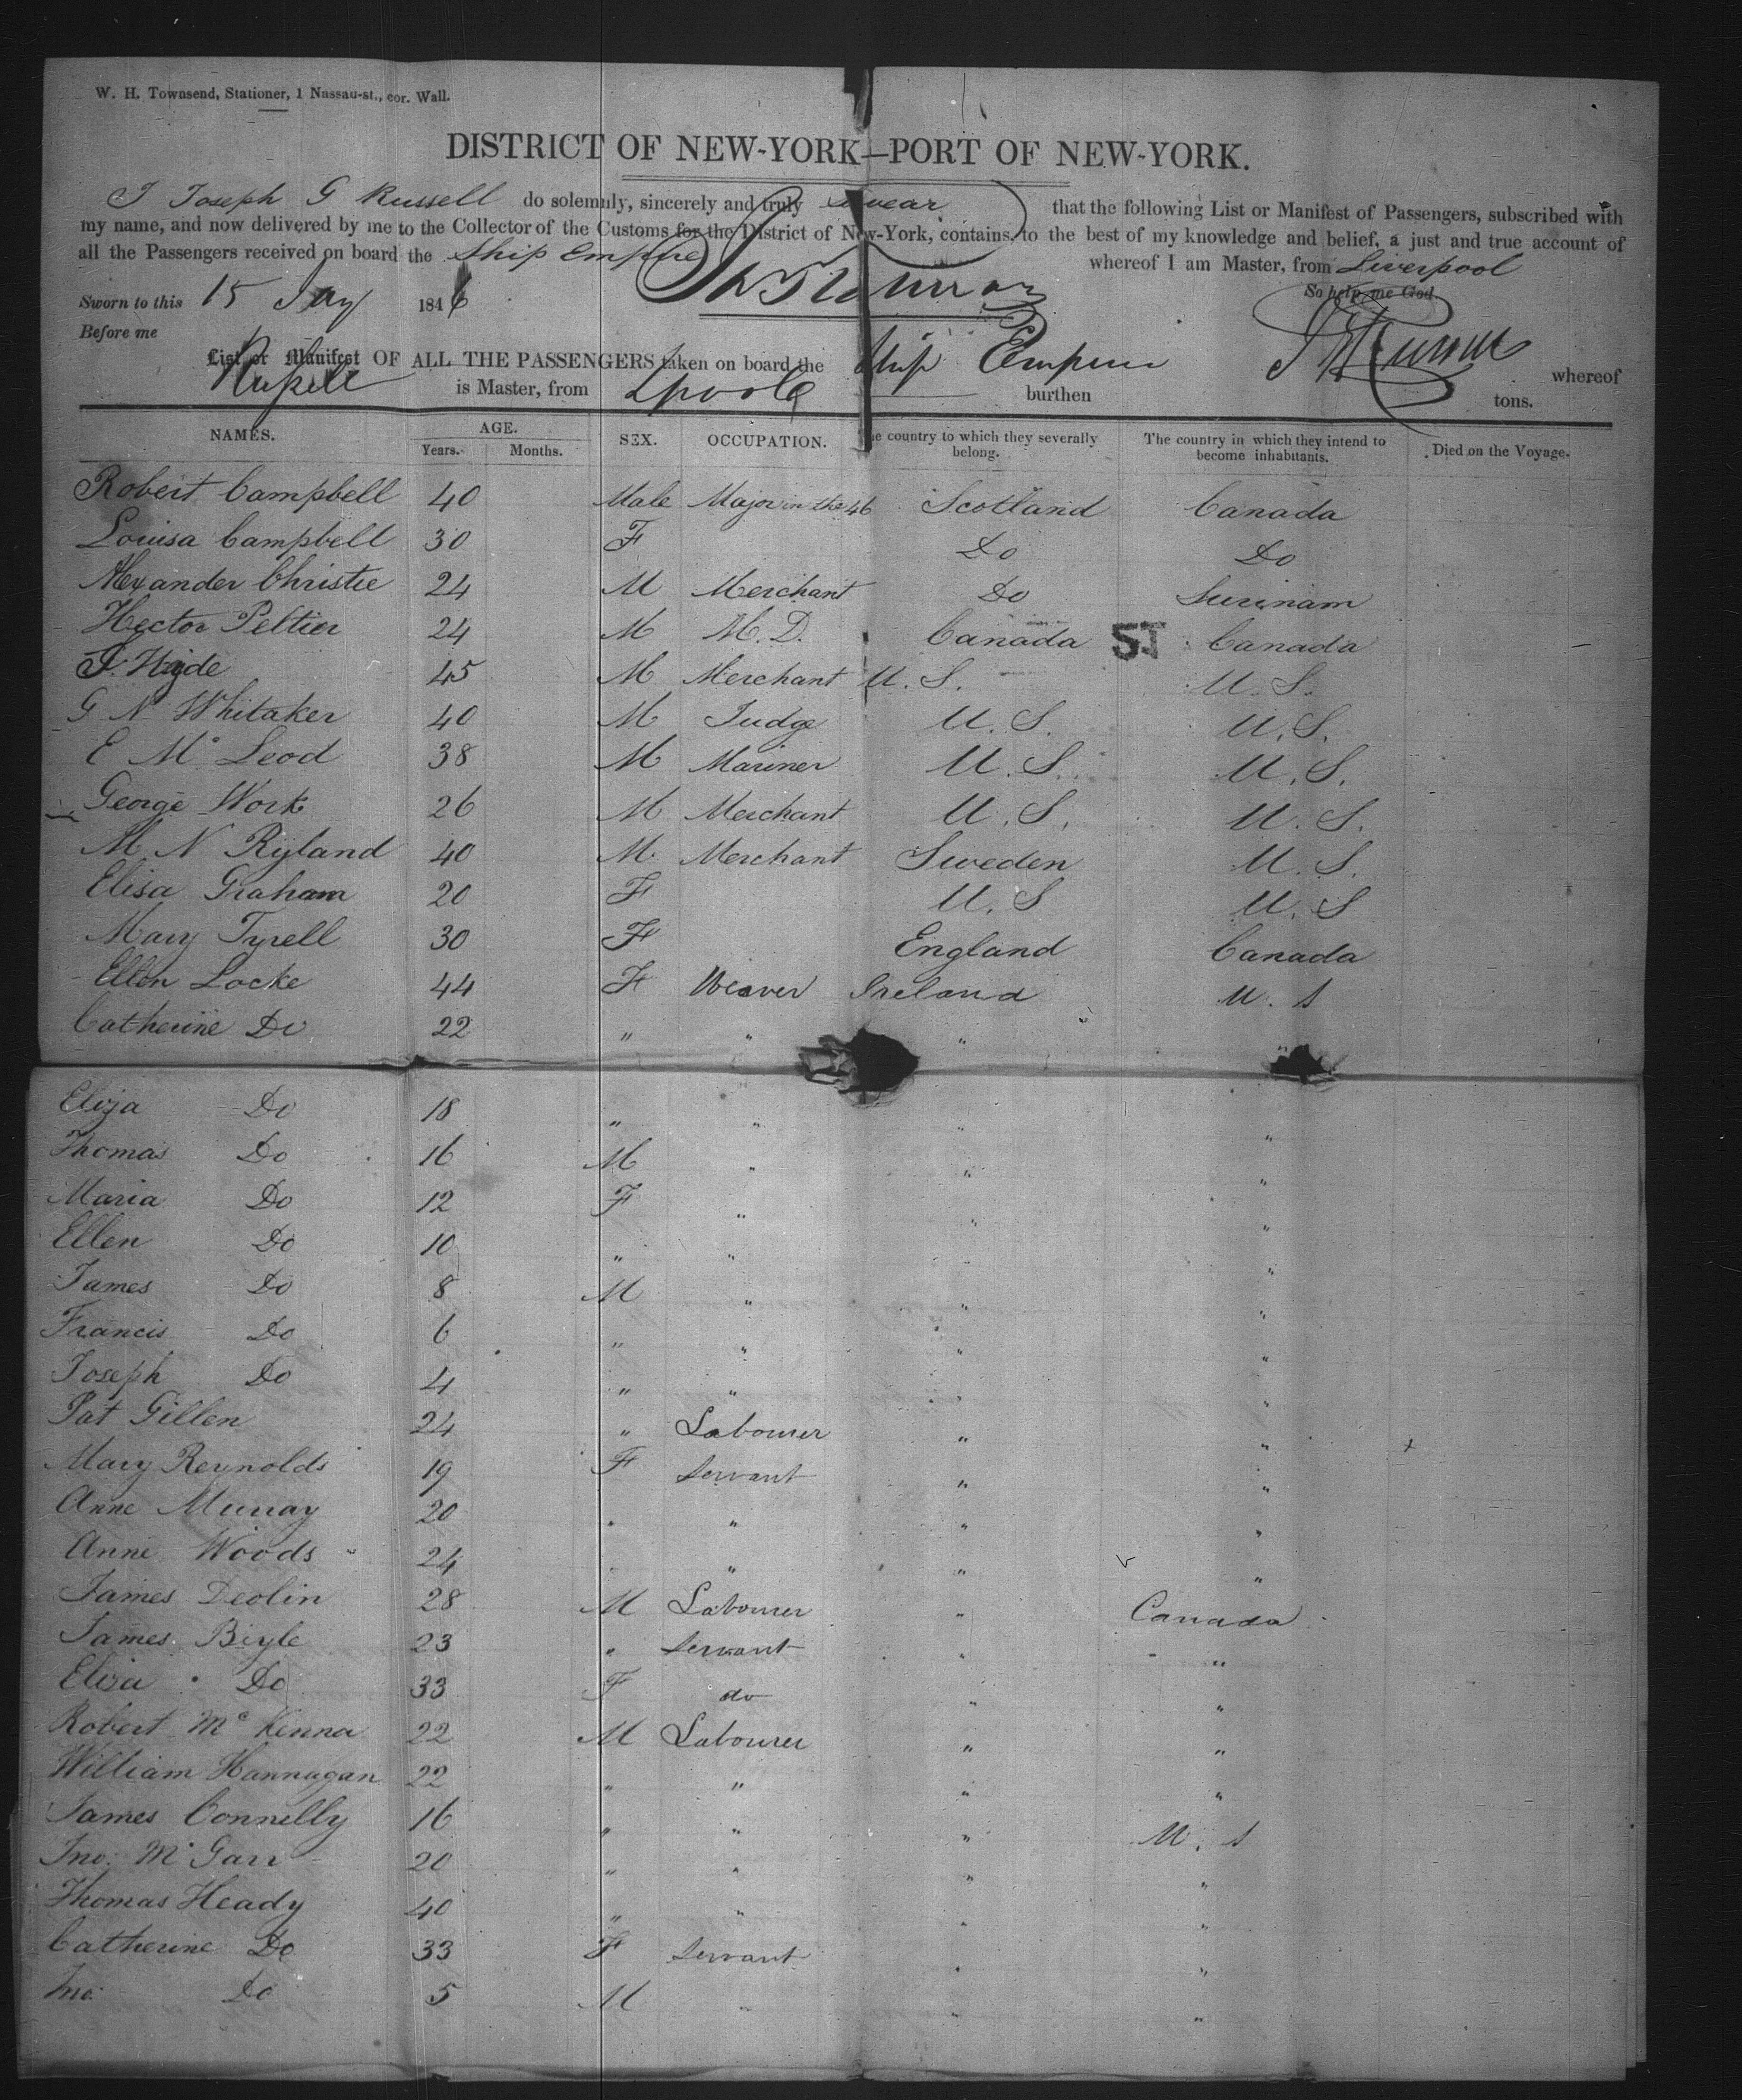 W. H. Townsend, Stationer, 1 Nassau-st., cor. Wall.
DISTRICT OF NEW-YORK—PORT OF NEW-YORK.
I Joseph G Russell do solemnly, sincerely and truly swear that the following List or Manifest of Passengers, subscribed with
my name, and now delivered by me to the Collector of the Customs for the District of New-York, contains, to the best of my knowledge and belief, a just and true account of
all the Passengers received on board the Ship Empire whereof I am Master, from Liverpool
Sworn to this 15 Jany 1846 So help me God.
Before me
List or Manifest OF ALL THE PASSENGERS taken on board the Ship Empire whereof
is Master, from Lpoole burthen tons.
NAMES. AGE. SEX. OCCUPATION. The country to which they severally belong. The country in which they intend to become inhabitants. Died on the Voyage.
Years. Months.
Robert Campbell 40 Male Major in the 46 Scotland Canada
Louisa Campbell 30 F Do Do
Alexander Christie 24 M Merchant Do Surinam
Hector Peltier 24 M M.D. Canada 51 Canada
J. Hyde 45 M Merchant U.S. U.S.
G N Whitaker 40 M Judge U.S. U.S.
E Mc Leod 38 M Mariner U.S. U.S.
George Work 26 M Merchant U.S. U.S.
M N Ryland 40 M Merchant Sweden U.S.
Elisa Graham 20 F U.S U.S
Mary Tyrell 30 F England Canada
Ellen Locke 44 F Weaver Ireland U.S
Catherine Do 22 " " "
Eliza Do 18 " " " "
Thomas Do 16 M " " "
Maria Do 12 F " " "
Ellen Do 10 " " " "
James Do 8 M " " "
Francis Do 6 " " " "
Joseph Do 4 " " " "
Pat Gillen 24 " Labourer " "
Mary Reynolds 19 F Servant " "
Anne Murray 20 " " " "
Anne Woods 24 " " " "
James Deolin 28 M Labourer " Canada
James Biyle 23 " Servant " "
Eliza Do 33 F do " "
Robert Mc Kenna 22 M Labourer " "
William Hannagan 22 " " " "
James Connelly 16 " " " U.S
Jno. Mc Garr 20 " " " "
Thomas Heady 40 " " " "
Catherine Do 33 F Servant " "
Jno. Do 5 M " " "